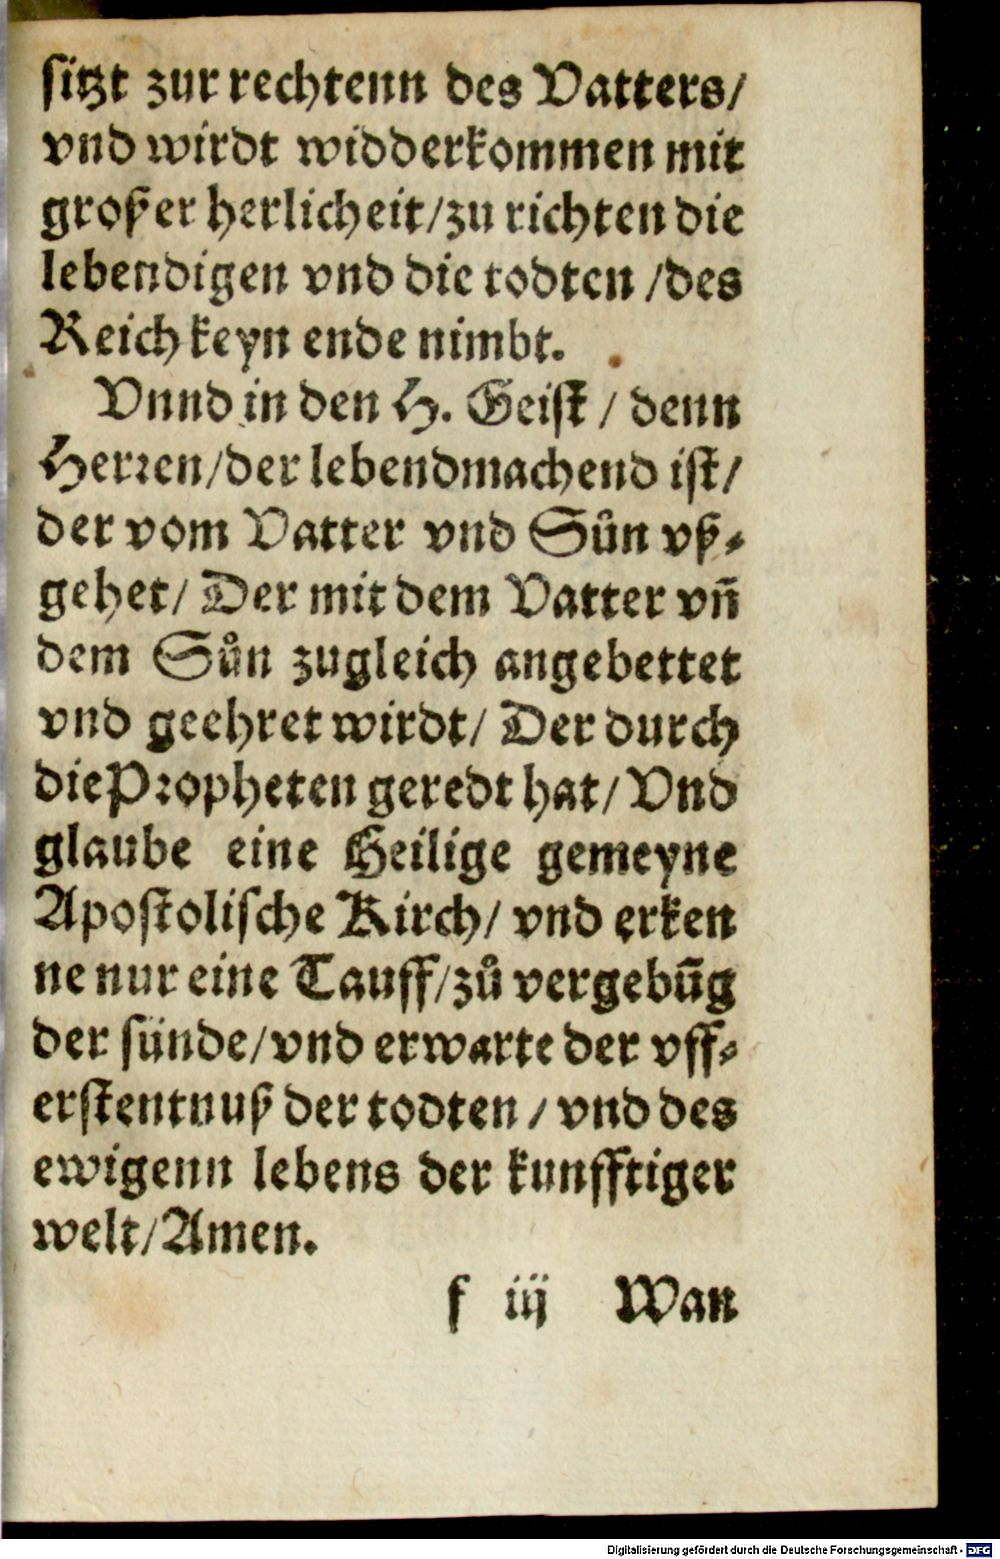 sitzt zur rechtenn des Vatters/
vnd wirdt widderkommen mit
großer herlicheit/zu richten die
lebendigen vnd die todten /des
Reich keyn ende nimbt.
Vnnd in den H. Geist / denn
Herꝛen/der lebendmachend ist/
der vom Vatter vnd Suͤn vß⸗
gehet/ Der mit dem Vatter vn̄
dem Sůn zugleich angebettet
vnd geehret wirdt/ Der durch
die Pꝛopheten geredt hat/ Vnd
glaube eine Heilige gemeyne
Apostolische Kirch/ vnd erken
ne nur eine Tauff/zů vergebūg
der sünde/vnd erwarte der vff⸗
erstentnuß der todten / vnd des
ewigenn lebens der kunfftiger
welt/Amen.
f iij Wan
Digitalisierung gefördert durch die Deutsche Forschungsgemeinschaft - DFG